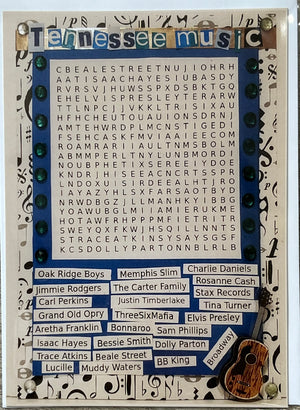 Tennessee music
C B E A L E S T R E E T N U J I O H R H
A A T I S A A C H A Y E S I U B A S D Y
R V R S V J H U W S S P X D S B K T G O
E H E L V I S P R E S L E Y T E R A R W
T T L N P C J J V K K L T R I S I X A U
H F H C H E U T O U A U I O N S D R N J
A M T E H W R D P L M C N S T I G E D I
F S E H C A S K F M V I A A I E E C O M
R O A M R A R I I A U L T N M S B O L M
A B M M P E R L T N Y L U N B M O R D J
N O U B P H E T I X S E R E E I Y D O E
K N D R J H I S E E A C N C R T S S P R
L N D O X U I S I R D E E A L H T J R O
I A Y A Z Y H L S X F A R S A O T B Y D
N R W D B G Z J L L M A N H K Y I B B G
Y O A W U B G L M I I A M I E R U K M E
H O T A W F R H P P P M F I E T R I T R
S W E Y Q X F K W J H S Q I L L N N T S
S T R A C E A T K I N S Y S A Y S G S F
K C S D O L L Y P A R T O N N B L R L B
Oak Ridge Boys Memphis Slim Charlie Daniels
Jimmie Rodgers The Carter Family Rosanne Cash
Carl Perkins Justin Timberlake Stax Records
Grand Old Opry ThreeSixMafia Tina Turner
Aretha Franklin Bonnaroo Sam Phillips Elvis Presley
Isaac Hayes Bessie Smith Dolly Parton Broadway
Trace Atkins Beale Street BB King
Lucille Muddy Waters